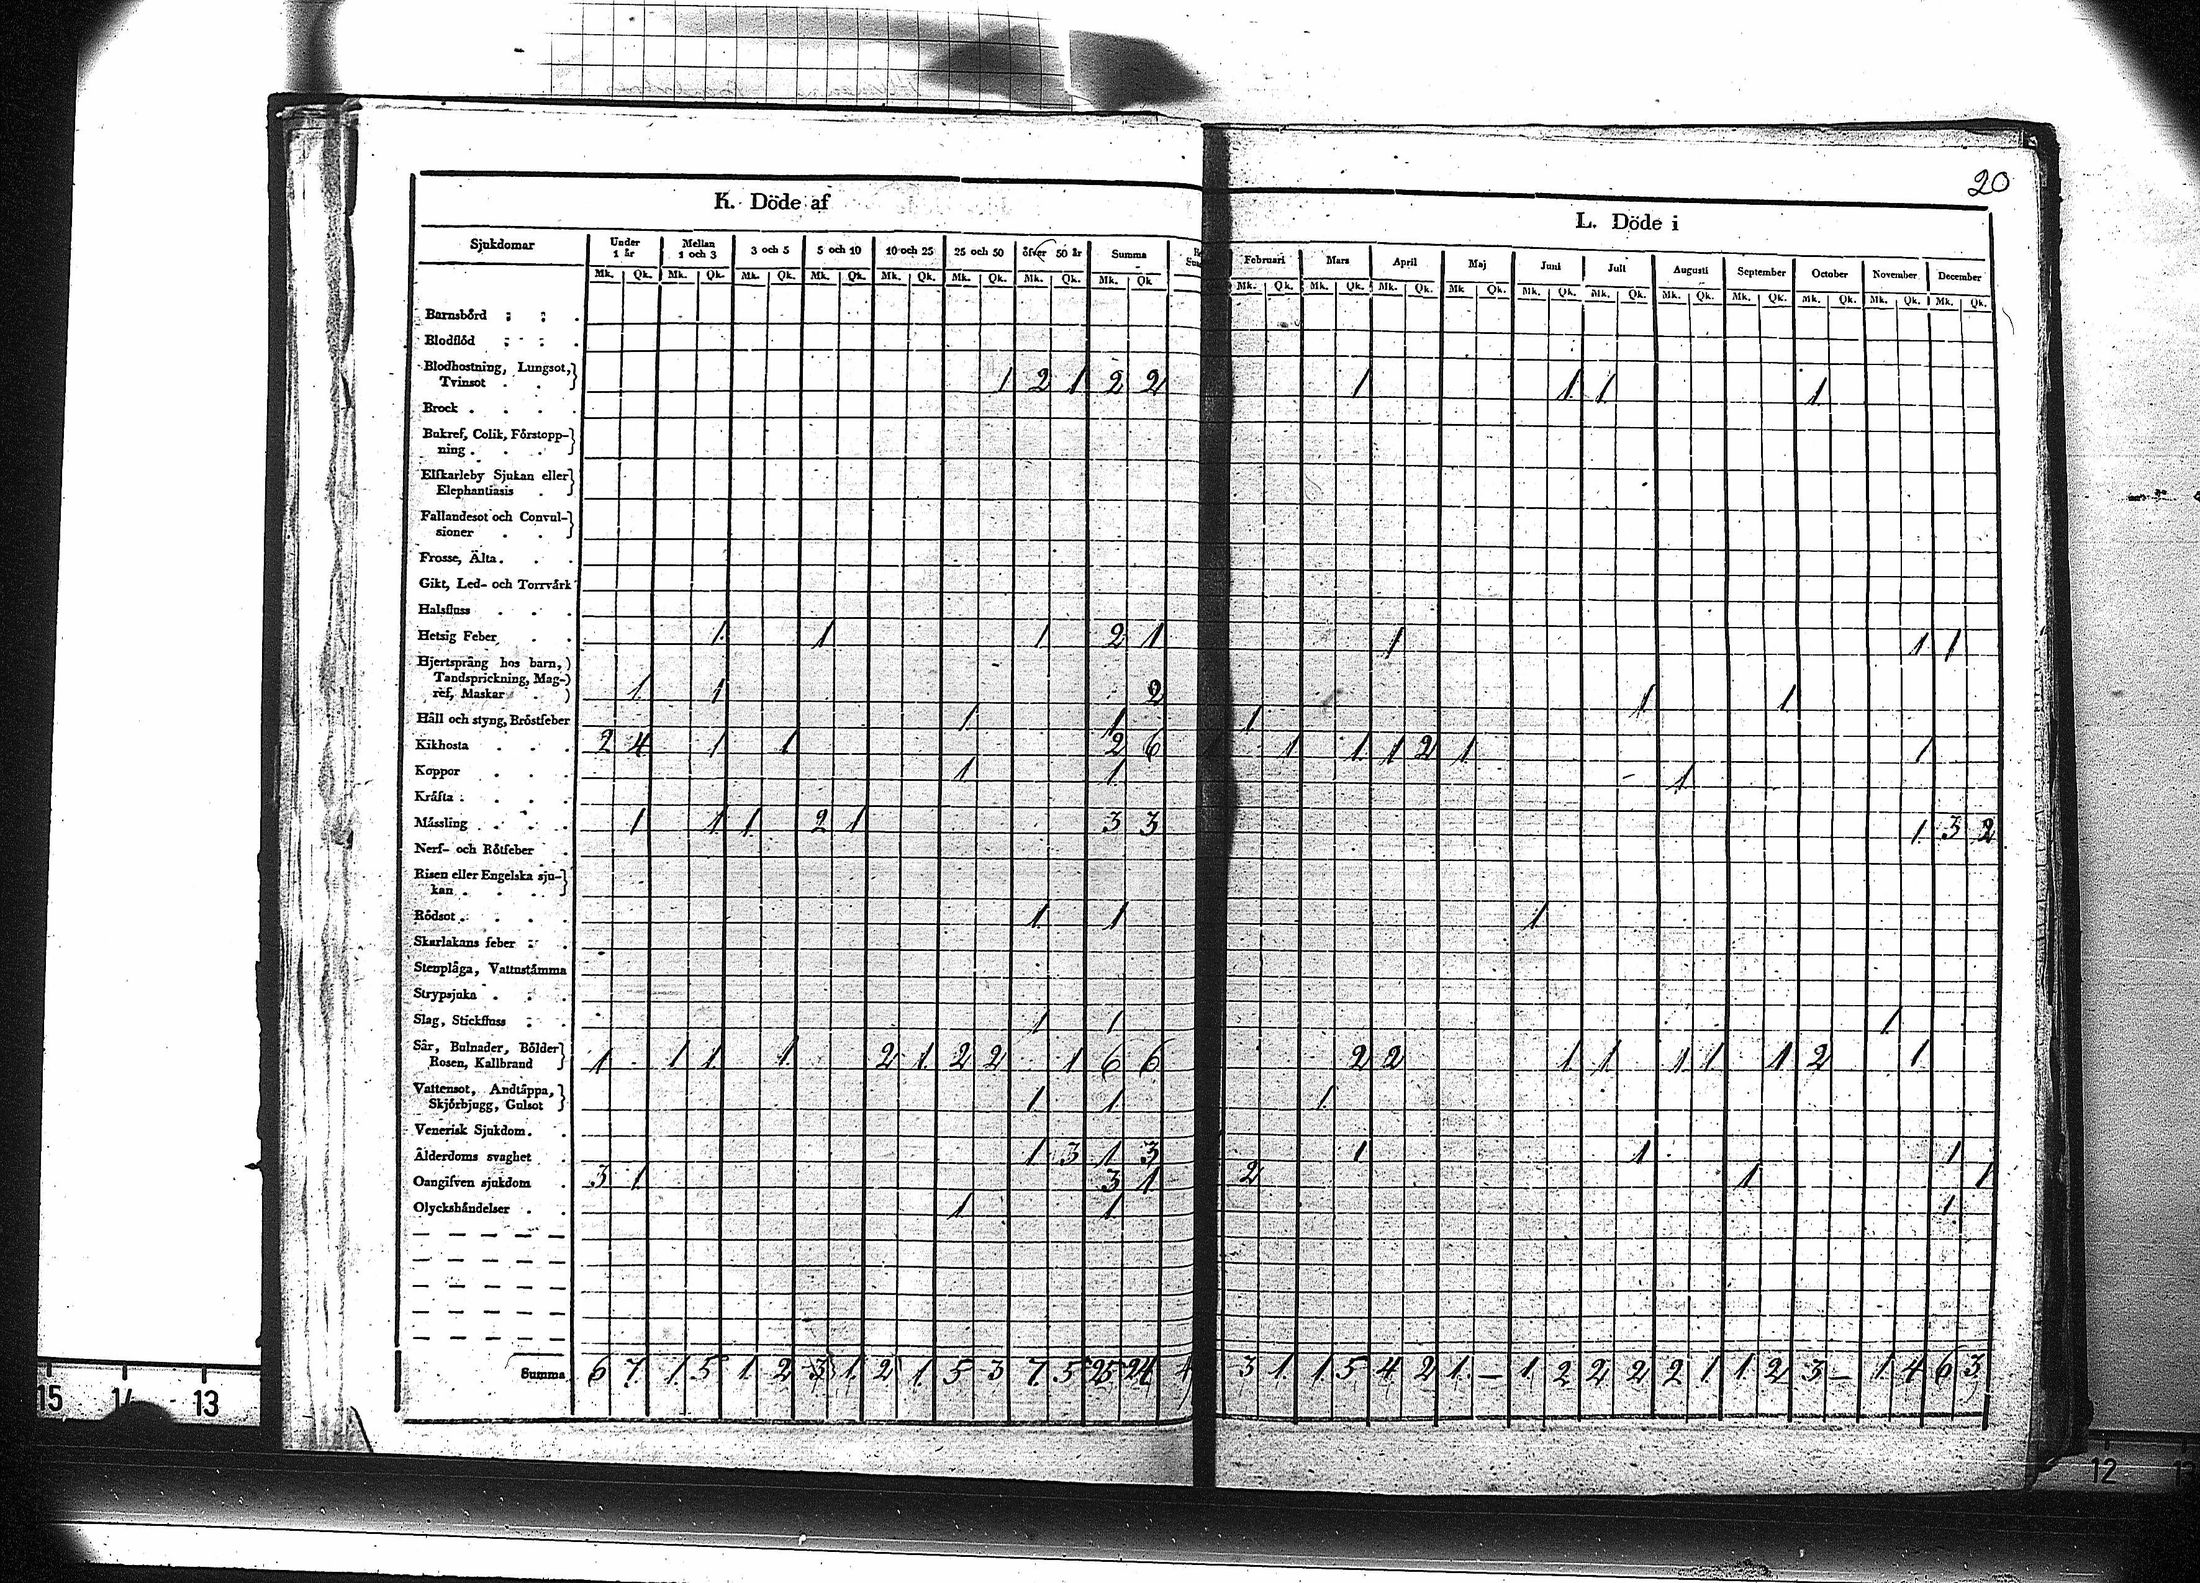 20
K. Döde af
Sjukdomar Under 1 år Mellan 1 och 3 3 och 5 5 och 10 10 och 25 25 och 50 öfver 50 år Summa
Mk. Qk. Mk. Qk. Mk. Qk. Mk. Qk. Mk. Qk. Mk. Qk. Mk. Qk. Mk. Qk
Barnsbörd
Blodflöd
Blodhostning, Lungsot,
Tvinsot 1 2 1 2 2
Brock
Bukref, Colik, Förstopp-
ning
Elfkarleby Sjukan eller
Elephantiasis
Fallandesot och Convul-
sioner
Frosse, Älta
Gikt, Led- och Torrvärk
Halsfluss
Hetsig Feber 1 1 1 2 1
Hjertsprång hos barn,
Tandsprickning, Mag-
ref, Maskar 1 1 2
Håll och styng, Bröstfeber 1 1
Kikhosta 2 4 1 1 2 6
Koppor 1 1
Kräfta
Mässling 1 1 1 2 1 3 3
Nerf- och Rötfeber
Risen eller Engelska sju-
kan
Rödsot 1 1
Skarlakans feber
Stenplåga, Vattnstämma
Strypsjuka
Slag, Stickfluss 1 1
Sår, Bulnader, Bölder
Rosen, Kallbrand 1 1 1 1 2 1 2 2 1 6 6
Vattensot, Andtäppa,
Skjörbjugg, Gulsot 1 1
Venerisk Sjukdom.
Ålderdoms svaghet 1 3 1 3
Oangifven sjukdom 3 1 3 1
Olyckshändelser 1 1
Summa 6 7 1 5 1 2 3 1 2 1 5 3 7 5 25 24
L. Döde i
Februari Mars April Maj Juni Juli Augusti September October November December
Mk. Qk. Mk. Qk. Mk. Qk. Mk Qk. Mk. Qk. Mk. Qk. Mk. Qk. Mk. Qk. Mk. Qk. Mk. Qk. Mk. Qk.
1 1 1 1
1 1 1
1 1
1
1 1 1 2 1 1
1
1 3 2
1
1
2 2 1 1 1 1 1 2 1
1
1 1 1
2 1 1
1
3 1 1 5 4 2 1 — 1 2 2 2 2 1 1 2 3 — 1 4 6 3
15 14 13
12